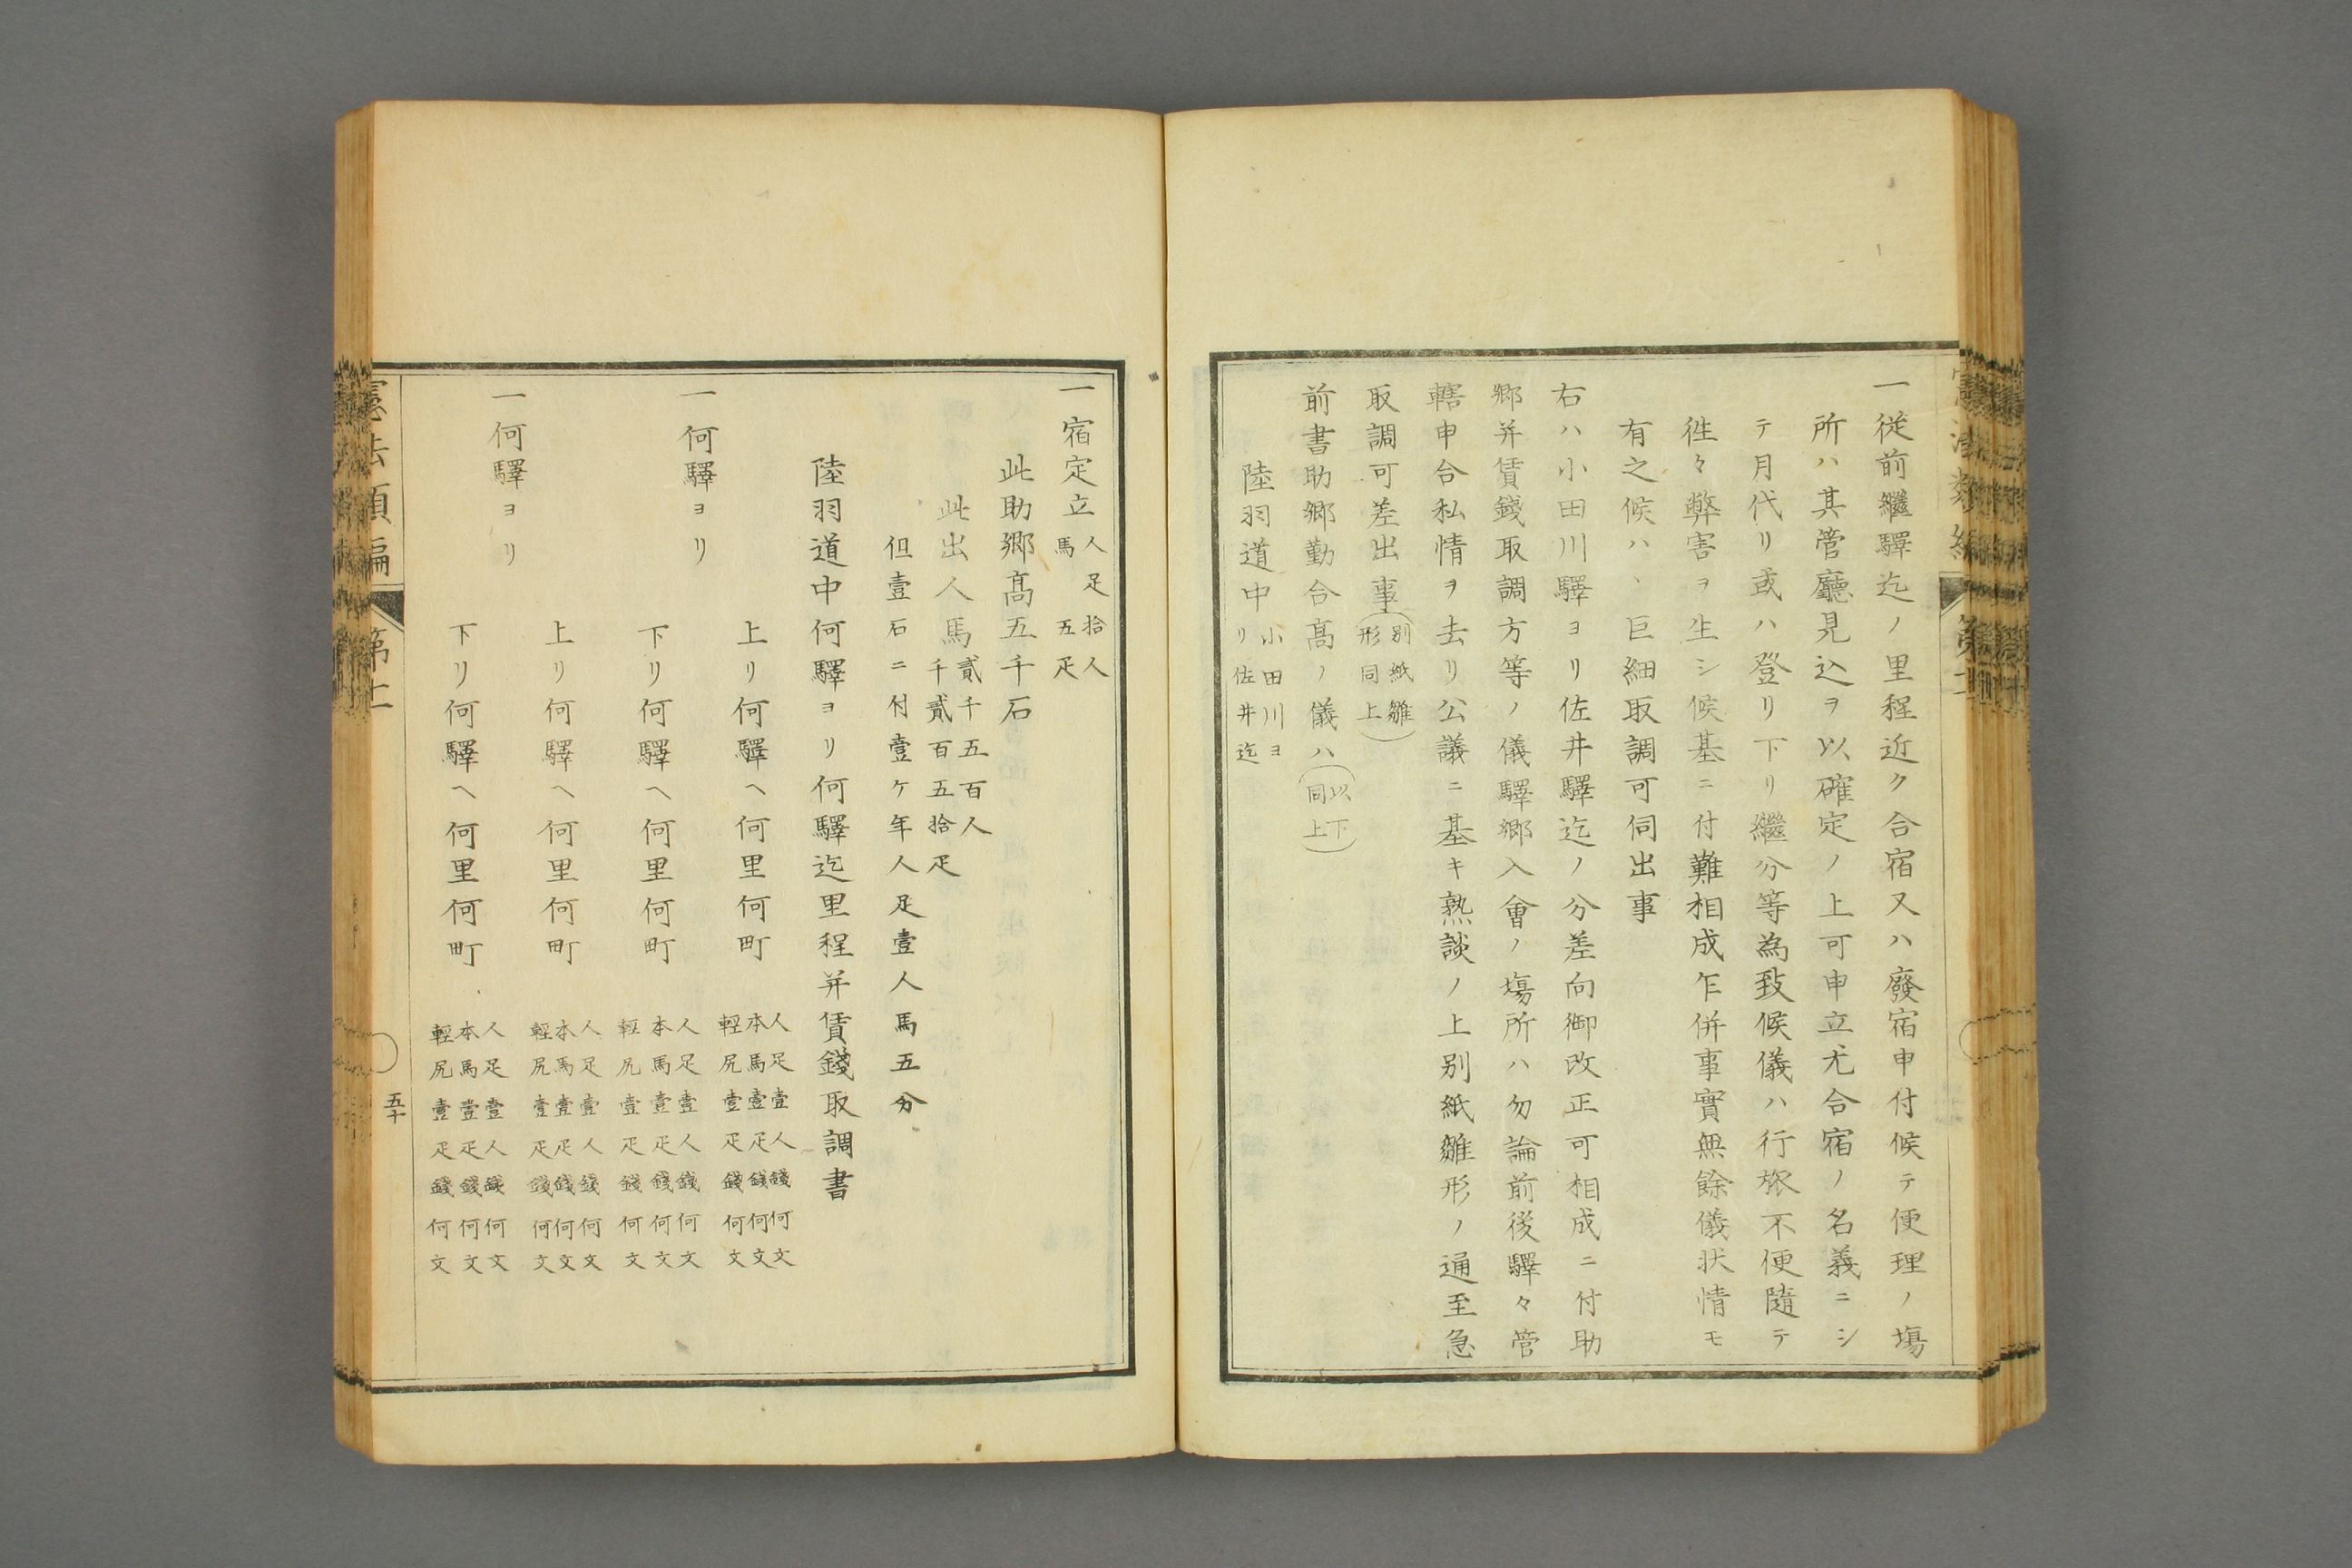 一從前繼驛迄ノ里程近ク合宿又ハ廢宿申付候テ便理ノ塲
所ハ其管廳見込ヲ以確定ノ上可申立尤合宿ノ名義ニシ
テ月代リ或ハ登リ下リ繼分等為致候儀ハ行旅不便隨テ
徃々弊害ヲ生シ候基ニ付難相成乍併事實無餘儀状情モ
有之候ハヽ巨細取調可伺出事
右ハ小田川驛ヨリ佐井驛迄ノ分差向御改正可相成ニ付助
郷并賃錢取調方等ノ儀驛郷入會ノ塲所ハ勿論前後驛々管
轄申合私情ヲ去リ公議ニ基キ熟談ノ上別紙雛形ノ通至急
取調可差出事(別紙雛形同上)
前書助郷勤合髙ノ儀ハ(以下同上)
陸羽道中小田川ヨリ佐井迄
一宿定立人足拾人馬五疋
此助郷髙五千石
此出人馬貳千五百人千貳百五拾疋
但壹石ニ付壹ケ年人足壹人馬五分
陸羽道中何驛ヨリ何驛迄里程并賃錢取調書
一何驛ヨリ
上リ何驛ヘ何里何町
人足壹人錢何文
本馬壹疋錢何文
輕尻壹疋錢何文
下リ何驛ヘ何里何町
人足壹人錢何文
本馬壹疋錢何文
輕尻壹疋錢何文
一何驛ヨリ
上リ何驛ヘ何里何町
人足壹人錢何文
本馬壹疋錢何文
輕尻壹疋錢何文
下リ何驛ヘ何里何町
人足壹人錢何文
本馬壹疋錢何文
輕尻壹疋錢何文
五十